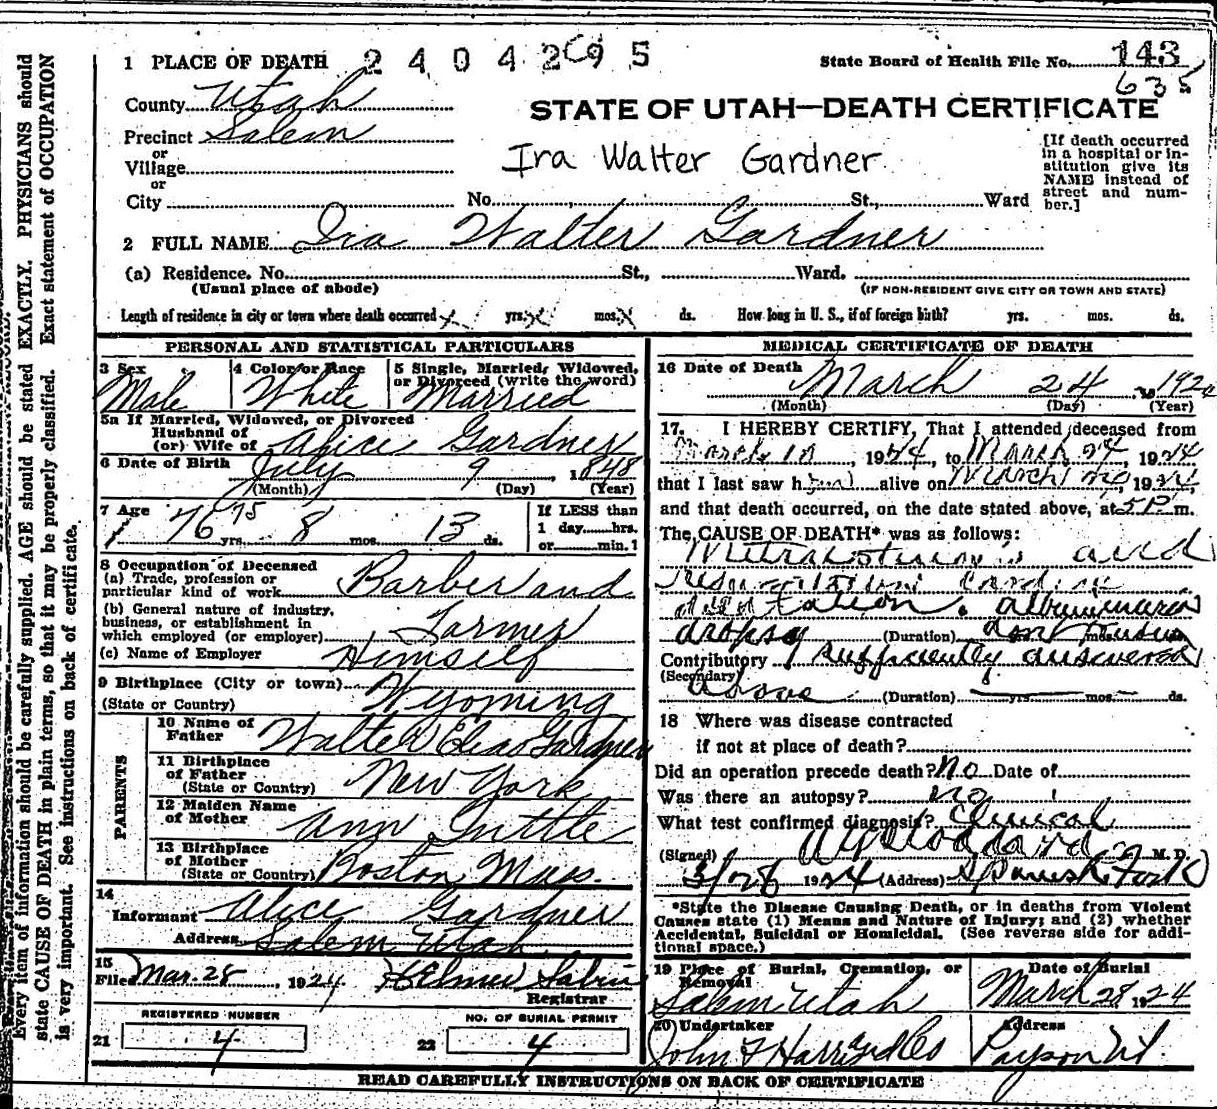 1 PLACE OF DEATH 2 4 0 4 2 9 5 State Board of Health File No. 143
635
County Utah
STATE OF UTAH—DEATH CERTIFICATE
Precinct Salem
or
Village
or
City No. St., Ward
Ira Walter Gardner
[If death occurred
in a hospital or in-
stitution give its
NAME instead of
street and num-
ber.]
2 FULL NAME Ira Walter Gardner
(a) Residence. No. St., Ward.
(Usual place of abode) (IF NON-RESIDENT GIVE CITY OR TOWN AND STATE)
Length of residence in city or town where death occurred x yrs. x mos. x ds. How long in U. S., if of foreign birth? yrs. mos. ds.
PERSONAL AND STATISTICAL PARTICULARS
3 Sex 4 Color or Race 5 Single, Married, Widowed,
or Divorced (write the word)
Male White Married
5a If Married, Widowed, or Divorced
Husband of
(or) Wife of Alice Gardner
6 Date of Birth July 9 1848
(Month) (Day) (Year)
7 Age 76 75 yrs. 8 mos. 13 ds.
If LESS than
1 day hrs.
or min.1
8 Occupation of Deceased
(a) Trade, profession or
particular kind of work Barber and
(b) General nature of industry,
business, or establishment in
which employed (or employer) Farmer
(c) Name of Employer Himself
9 Birthplace (City or town)
(State or Country) Wyoming
PARENTS
10 Name of
Father Walter Elias Gardner
11 Birthplace
of Father
(State or Country) New York
12 Maiden Name
of Mother Ann Tuttle
13 Birthplace
of Mother
(State or Country) Boston Mass.
14
Informant Alice Gardner
Address Salem Utah.
15
Filed Mar. 28, 1924 Sabin
Registrar
REGISTERED NUMBER NO. OF BURIAL PERMIT
21 4 22 4
MEDICAL CERTIFICATE OF DEATH
16 Date of Death March 24 192
(Month) (Day) (Year)
17. I HEREBY CERTIFY, That I attended deceased from
March 10, 1924, to March 24, 1924
that I last saw h alive on March 24, 1924,
and that death occurred, on the date stated above, at 5 P m.
The CAUSE OF DEATH* was as follows:
and
dilatation. albuminuria
dropsy (Duration) mos.
Contributory sufficiently answered
(Secondary)
above (Duration) yrs. mos. ds.
18 Where was disease contracted
if not at place of death?
Did an operation precede death? No Date of
Was there an autopsy? no
What test confirmed diagnosis? Clinical
(Signed) M. D.
3/28 1924 (Address) Spanish Fork
*State the Disease Causing Death, or in deaths from Violent
Causes state (1) Means and Nature of Injury; and (2) whether
Accidental, Suicidal or Homicidal. (See reverse side for addi-
tional space.)
19 Place of Burial, Cremation, or
Removal Date of Burial
Salem Utah March 28 1924
20 Undertaker Address
John F Payson Ut.
READ CAREFULLY INSTRUCTIONS ON BACK OF CERTIFICATE
Every item of information should be carefully supplied. AGE should be stated EXACTLY. PHYSICIANS should
state CAUSE OF DEATH in plain terms, so that it may be properly classified. Exact statement of OCCUPATION
is very important. See instructions on back of certificate.